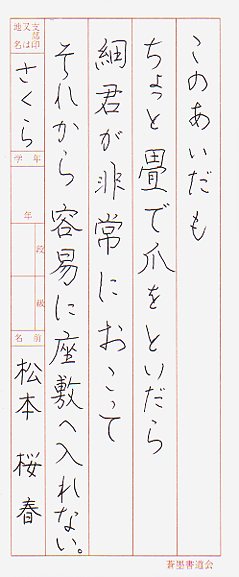 このあいだも
ちょっと畳で爪をといだら
細君が非常におこって
それから容易に座敷へ入れない。
支部印又は地名
さくら
学年
年
段
級
名前
松本 桜春
蒼墨書道会